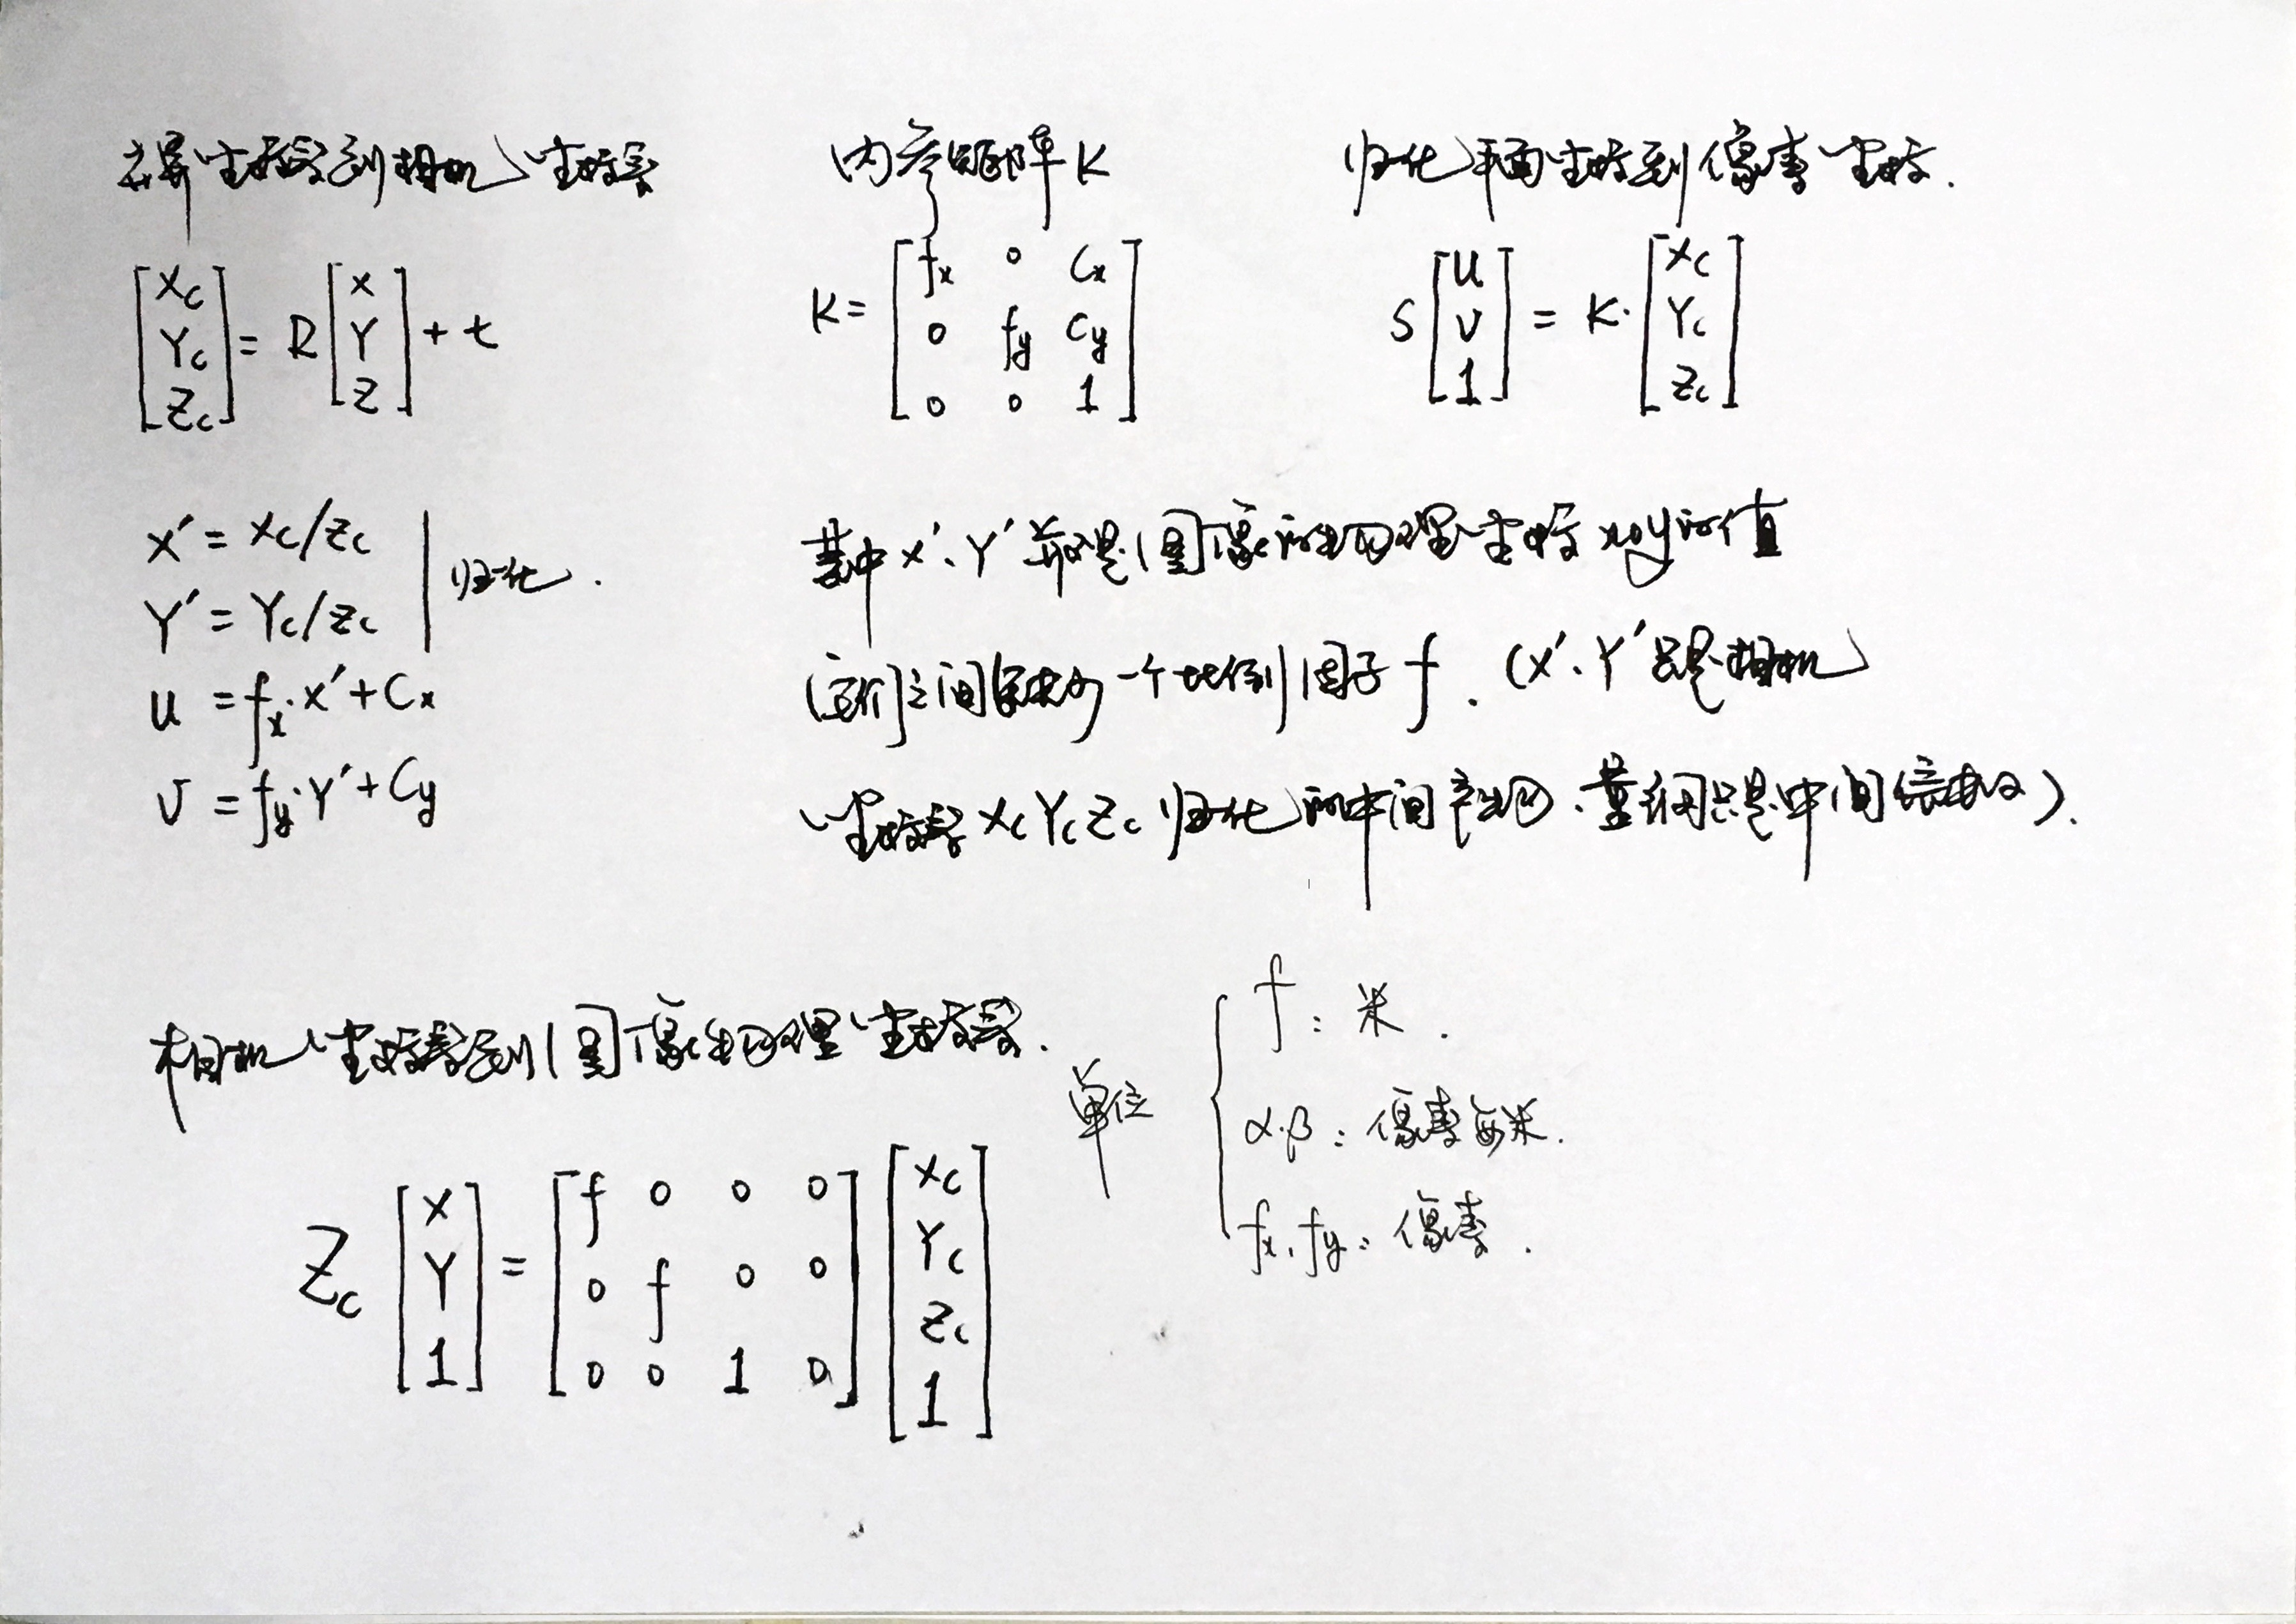 世界坐标系到相机坐标系
[Xc Yc Zc] = R [X Y Z] + t
内参矩阵K
K = [fx 0 Cx
0 fy Cy
0 0 1]
归一化平面坐标到像素坐标.
S [u v 1] = K· [Xc Yc Zc]
x′ = Xc/Zc
Y′ = Yc/Zc
归一化.
u = fx·x′+Cx
v = fy·Y′+Cy
其中 x′、Y′ 并不是图像的物理坐标 xoy的值
它们之间还缺少一个比例因子 f. (x′、Y′ 只是相机
坐标系 Xc Yc Zc 归一化的中间产物、只是中间).
相机坐标系到图像物理坐标系.
Zc [X Y 1] = [f 0 0 0
0 f 0 0
0 0 1 0] [Xc Yc Zc 1]
单位
f: 米.
α.β: 像素每米.
fx、fy: 像素.